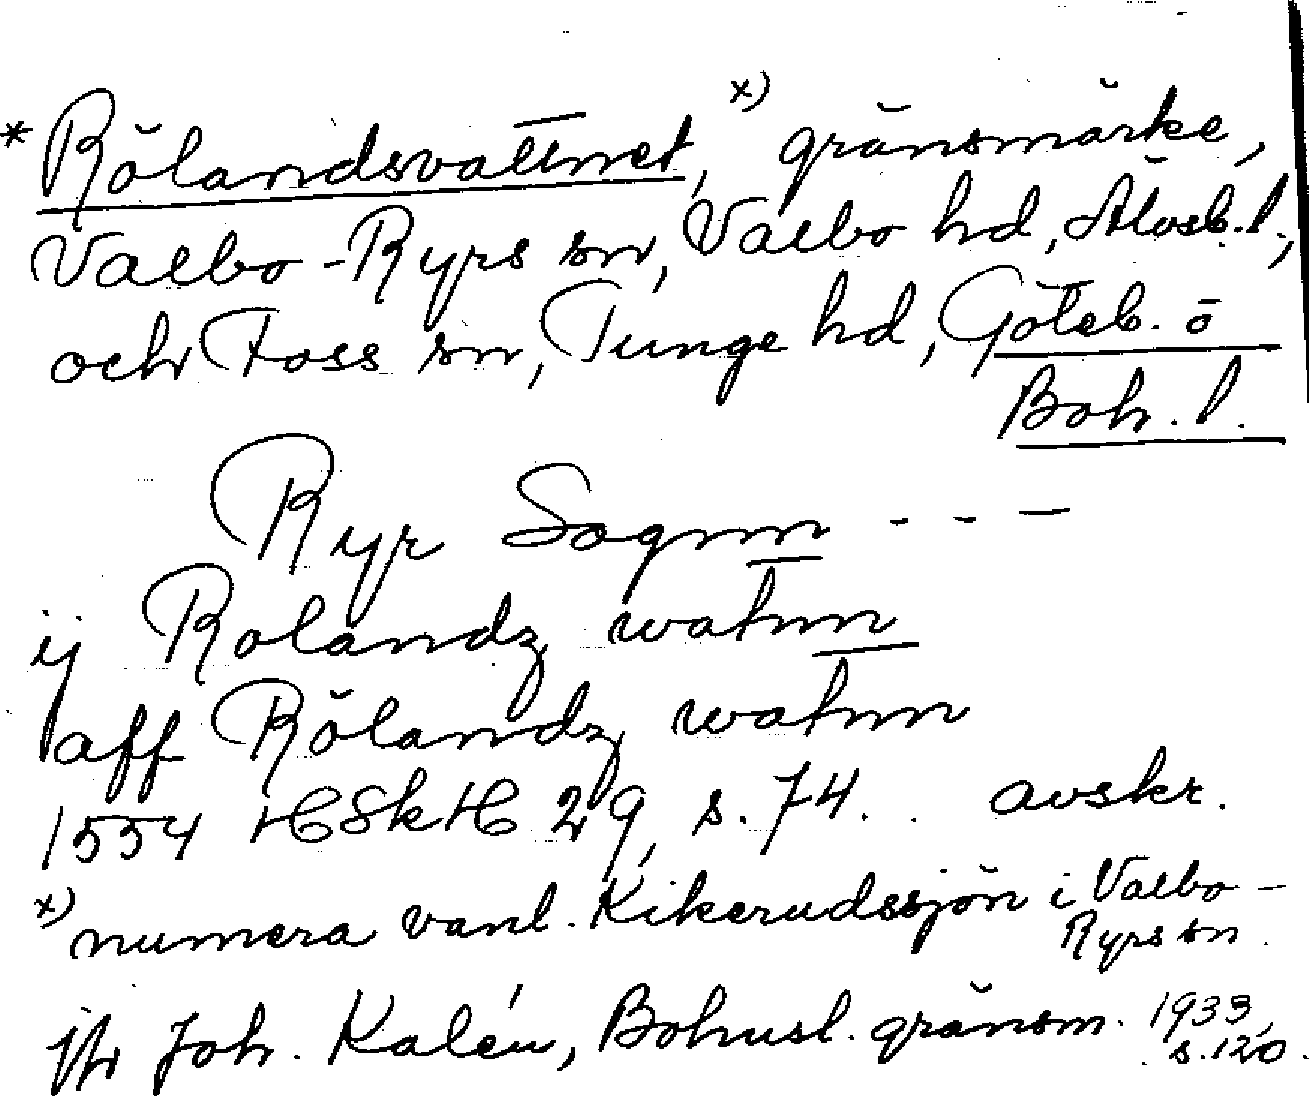 * Rölandsvattnet, x) gränsmärke,
Valbo-Ryrs sn, Valbo hd, Älvsb. l.,
och Foss sn, Tunge hd, Göteb. o
Boh. l.
Ryr Sognn - - -
ij Rolandz watnn
aff Rölandz watnn
1554 HSkH 29, s. 74. avskr.
x) numera vanl. Kikerudssjön i Valbo-
Ryrs sn.
jfr Joh. Kalén, Bohusl. gränsm. 1933,
s. 120.